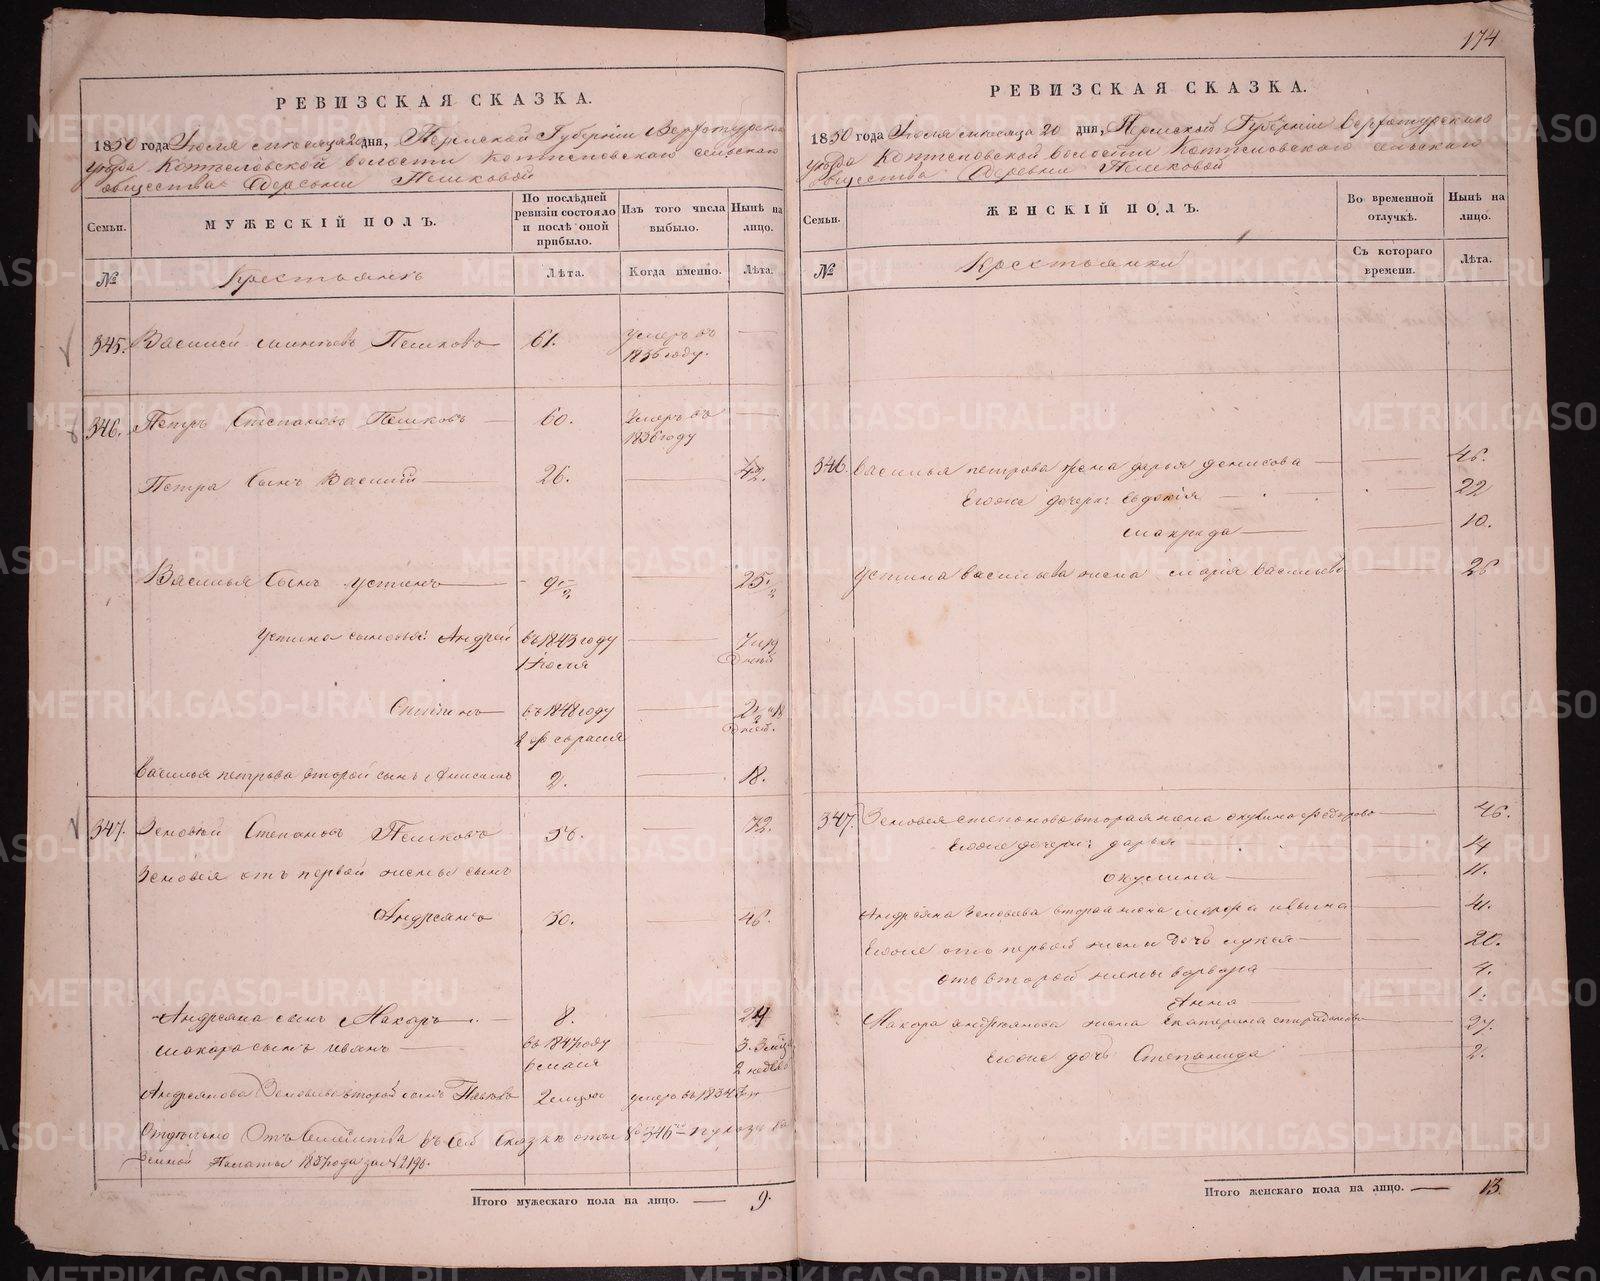 РЕВИЗСКАЯ СКАЗКА.
1850 года Июля месяца 20 дня, Пермской Губернии Верхотурскаго
уезда Коптеловской волости Коптеловскаго сельскаго
общества Деревни Пешковой
Семьи.
МУЖЕСКІЙ ПОЛЪ.
По послѣдней ревизіи состояло и послѣ оной прибыло.
Изъ того числа выбыло.
Нынѣ на лицо.
№
Крестьянъ
Лѣта.
Когда именно.
Лѣта.
345. Василий Пешковъ 61. умеръ въ 1835 году. —
346. Петръ Степановъ Пешковъ — 60. Умеръ въ 1836 году —
Петра Сынъ Василий — 26. — 42.
Василья Сынъ Устинъ — 9 1/2 — 25 1/2
Устина сыновья: Андрей въ 1843 году 1 Июля — 7 и 19 дней
въ 1848 году — 2 1/2 и 18 дней.
Василья Петрова второй сынъ Анисимъ 2. — 18.
347. Зеновей Степановъ Пешковъ 56. — 72.
Зеновея отъ первой жены сынъ
Андреянъ 30. — 46.
Андреяна сынъ Макаръ — 8. 24
Макара сынъ Иванъ — въ 1847 году 6 мая 3. 2 недели
Андреянова Зеновьева второй сынъ 2 месяцовъ умеръ въ 1834 г.
Отдѣльно Отъ Семейства въ сей Сказке отъ № 346го по указу Ка-
зенной Палаты 1837 года за № 2190.
Итого мужескаго пола на лицо. — 9.
174
РЕВИЗСКАЯ СКАЗКА.
1850 года Июля месяца 20 дня, Пермской Губернии Верхотурскаго
уезда Коптеловской волости Коптеловскаго сельскаго
общества Деревни Пешковой
Семьи.
ЖЕНСКІЙ ПОЛЪ.
Во временной отлучкѣ.
Нынѣ на лицо.
№
Крестьянки
Съ котораго времени.
Лѣта.
346. Василья Петрова жена Дарья Денисова — — 46.
Егоже дочери: Евдокія — — 22
Макрида — — 10.
Устина Васильева жена Марія Васильева — 26
347. Зеновея Степанова вторая жена Федорова — 46.
Егоже дочери: Дарья — — 14
Окулина — — 11.
Андреяна Зеновьева вторая жена — 41.
Егоже отъ первой жены дочь Лукья — — 20.
отъ второй жены Варвара — — 4.
Анна — — 1.
Макара Андреянова жена Екатерина Спиридонова — 27.
Егоже дочь Степанида 2.
Итого женскаго пола на лицо. — 13.
METRIKI.GASO-URAL.RU